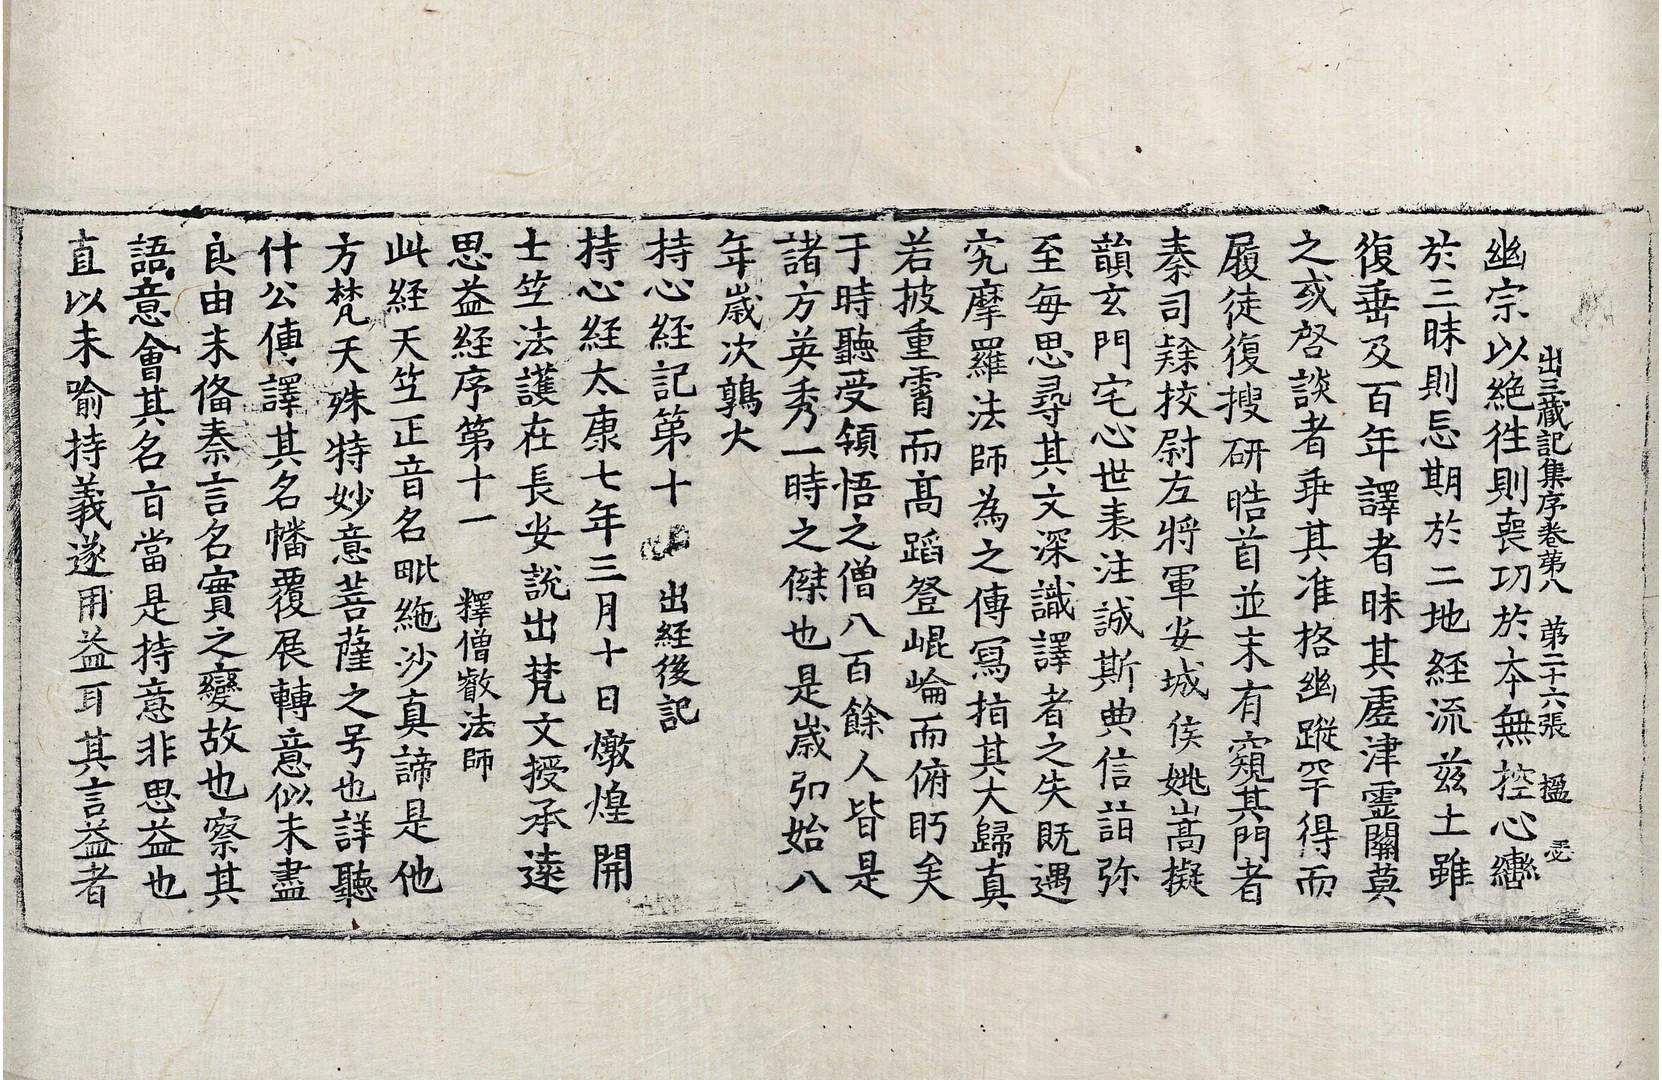 出三藏記集序卷第八　第二十六張　楹
幽宗以絶往則喪功於本無控心轡
於三昧則忘期於二地經流茲土雖
復垂及百年譯者昧其虗津靈關莫
之或啓談者乖其准格幽蹤罕得而
履徒復搜研皓首並未有窺其門者
秦司𨽻挍尉左將軍安城侯姚嵩擬
韻玄門宅心世表注誠斯典信詣弥
至每思尋其文深識譯者之失旣遇
究摩羅法師為之傳寫指其大歸真
若披重霄而髙蹈登崐崘而俯眄矣
于時聽受領悟之僧八百餘人皆是
諸方英秀一時之傑也是歲弘始八
年歲次鶉火
持心經記第十　出經後記
持心經太康七年三月十日燉煌開
士竺法護在長安說出梵文授承遠
思益經序第十一　釋僧叡法師
此經天竺正音名毗絁沙真諦是他
方梵天殊特妙意菩薩之号也詳聽
什公傳譯其名幡覆展轉意似未盡
良由未備秦言名實之變故也察其
語意會其名旨當是持意非思益也
直以未喻持義遂用益耳其言益者